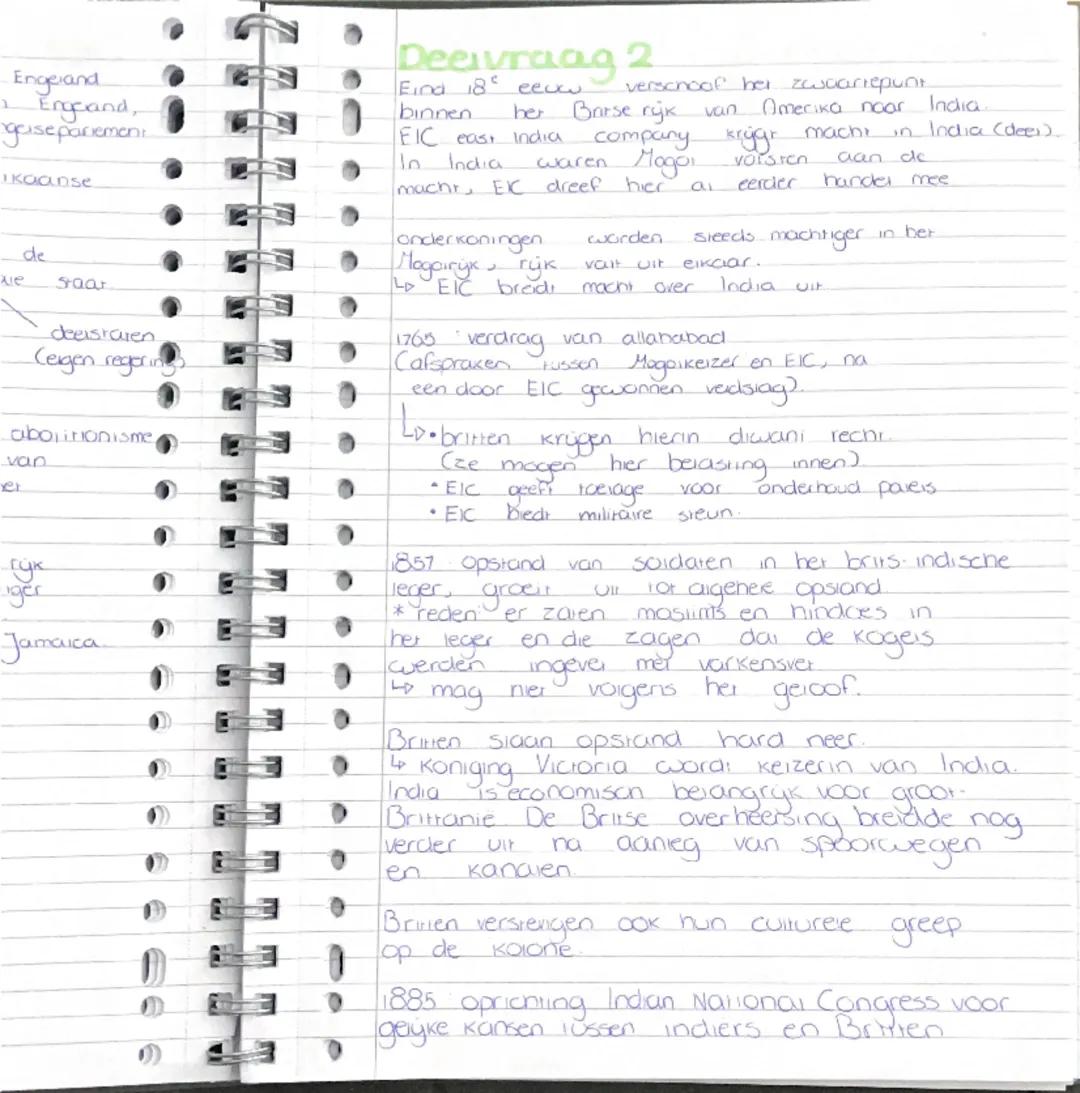 Engeland
Engeland,
ikaanse
de
staat
deelstaten
(eigen regering)
abolitionisme
van
rijk
Jamaica
Deelvraag 2
Eind 18e eeuw verschoof het zwaartepunt
binnen het Britse rijk van Amerika naar India.
EIC east India company krijgt macht in India (deel).
In India waren Mogol vorsten aan de
macht, EIC dreef hier al eerder handel mee
onderkoningen worden steeds machtiger in het
Mogolrijk, rijk valt uit elkaar.
↳ EIC breidt macht over India uit
1765 : verdrag van allahabad
(afspraken tussen Mogolkeizer en EIC, na
een door EIC gewonnen veldslag).
↳ • britten krijgen hierin diwani recht.
(ze mogen hier belasting innen)
• EIC geeft toelage voor onderhoud paleis
• EIC biedt militaire steun.
1857 : opstand van soldaten in het brits-indische
leger, groeit uit tot algehele opstand
* reden: er zaten moslims en hindoes in
het leger en die zagen dat de kogels
werden ingevet met varkensvet
↳ mag niet volgens het geloof.
Britten slaan opstand hard neer.
↳ Koniging Victoria wordt keizerin van India.
India is economisch belangrijk voor groot-
Brittanie. De Britse overheersing breidde nog
verder uit na aanleg van spoorwegen
en kanalen.
Britten verstevigen ook hun culturele greep
op de kolonie.
1885 : oprichting Indian National Congress voor
gelijke kansen tussen indiers en Britten